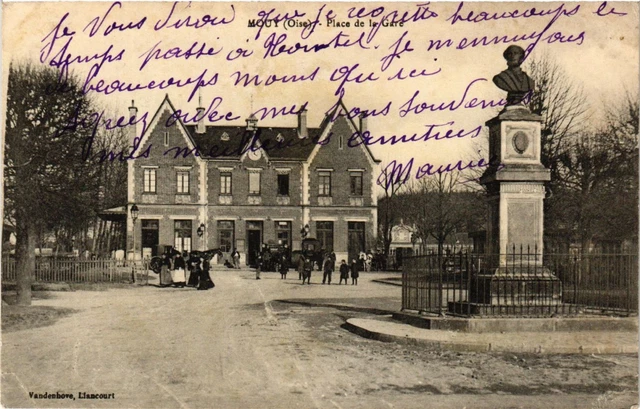 MOUY (Oise) - Place de la Gare
Je Vous dirai que je regrette beaucoups le
temps passé à Je m'ennuyais
beaucoups moins qu'ici
Agréez avec mes bons souvenirs
mes meilleures amitiées
Maurice
Vandenhove, Liancourt